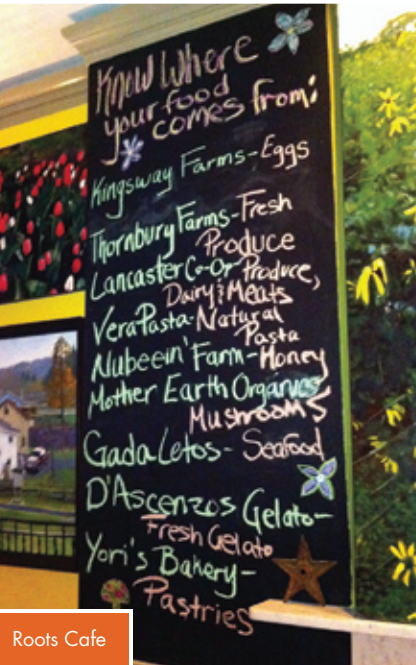 Know Where
your food
comes from:
Kingsway Farms-Eggs
Thornbury Farms-Fresh
Produce
Lancaster Co-Op Produce,
Dairy & Meats
Vera Pasta-Natural
Pasta
Nubeein' Farm-Honey
Mother Earth Organics
Mushrooms
Gadaletos- Seafood
D'Ascenzos Gelato-
Fresh Gelato
Yori's Bakery-
Pastries
Roots Cafe